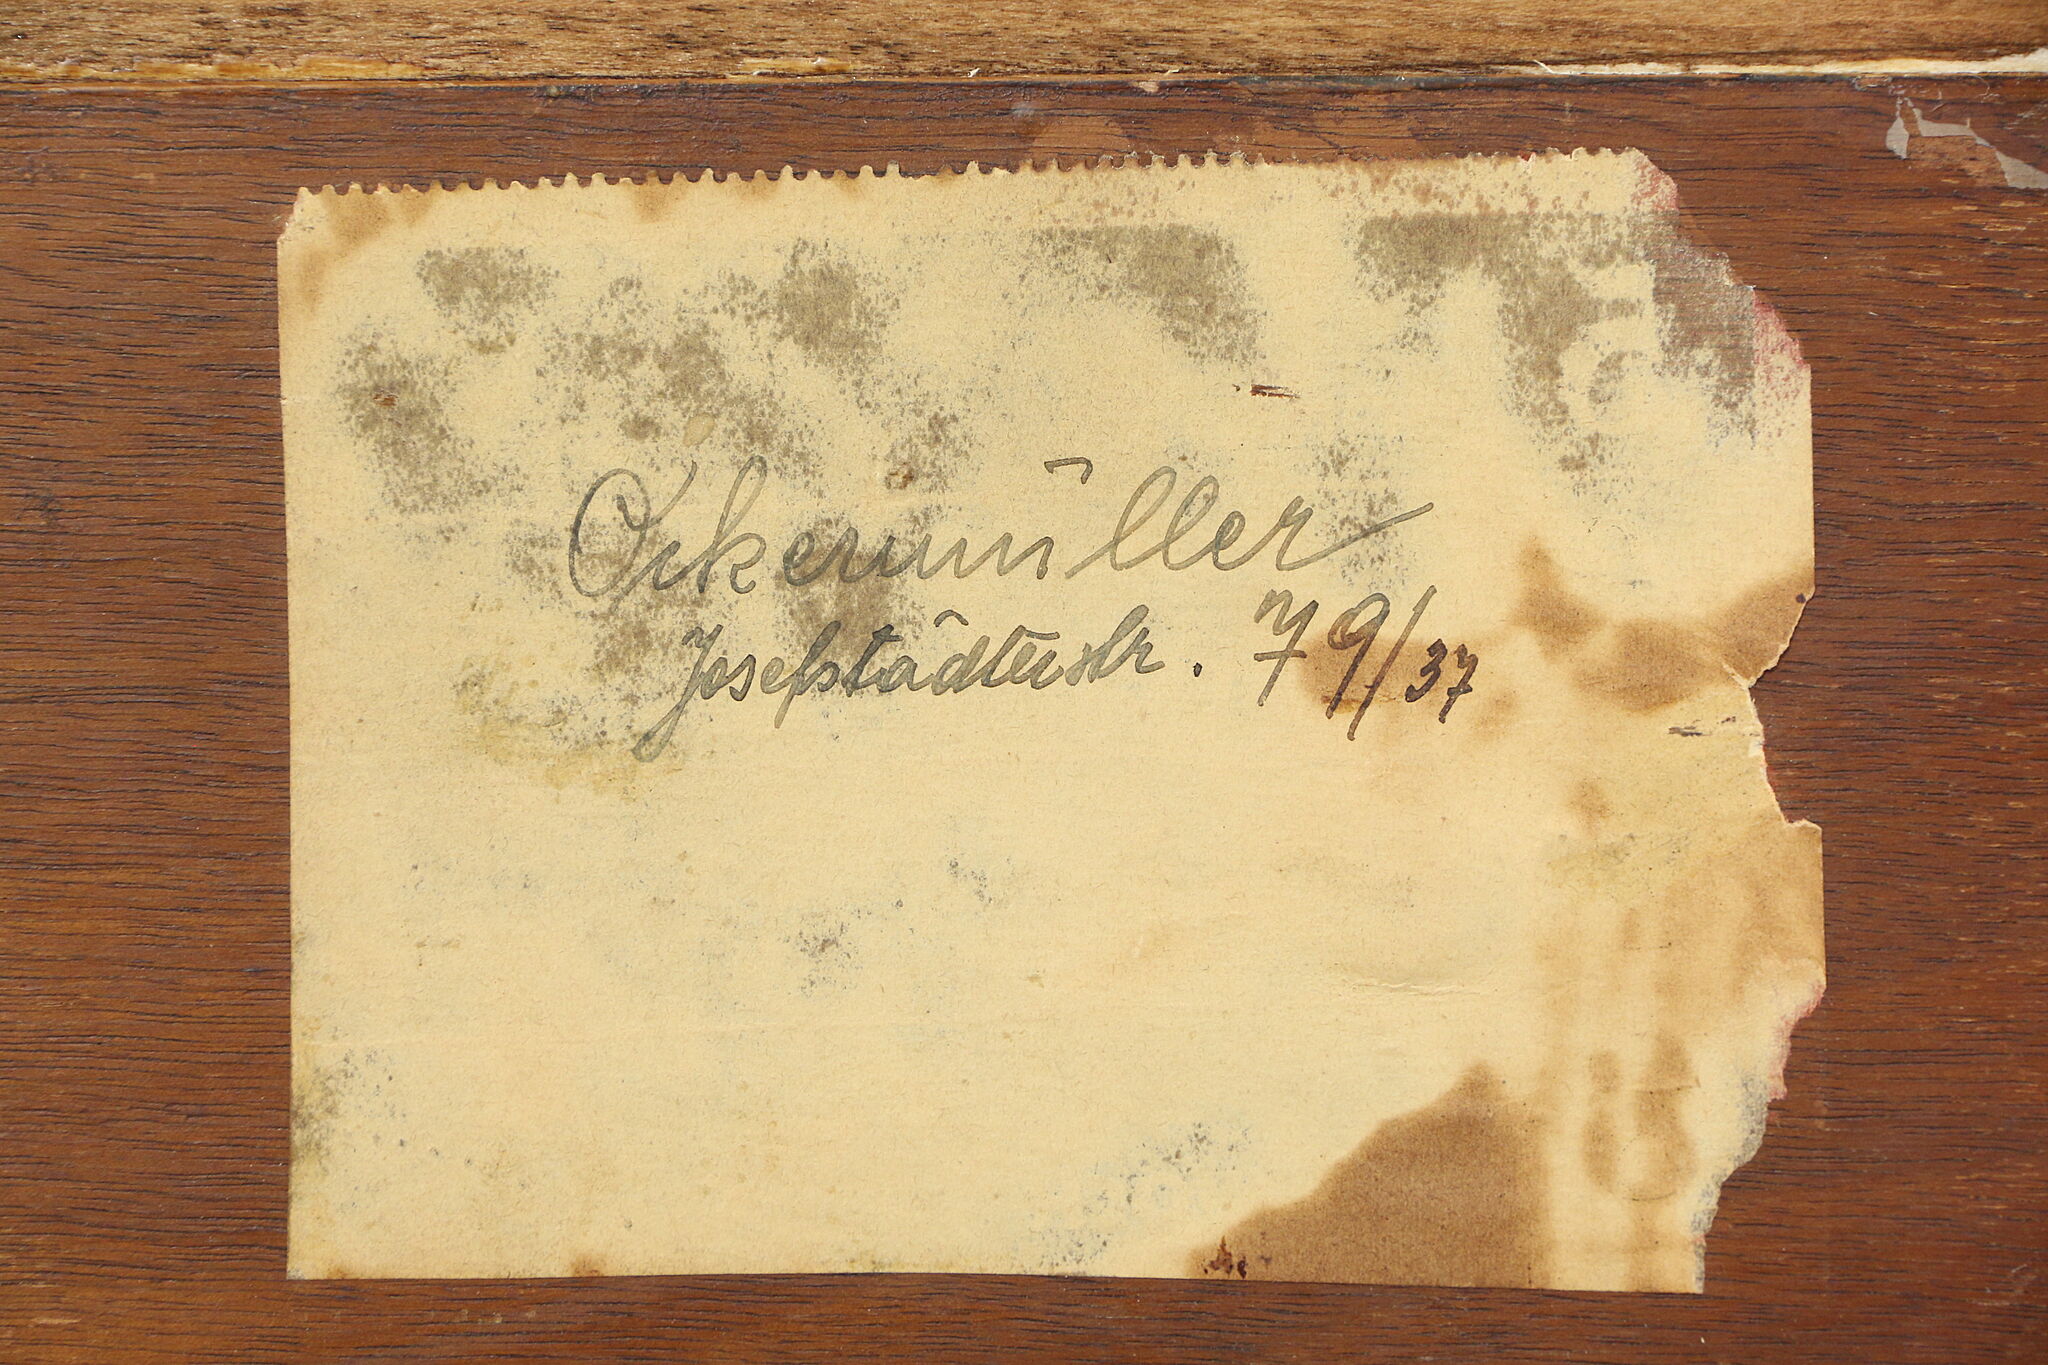 Öckermüller
Josefstädterstr. 79/37